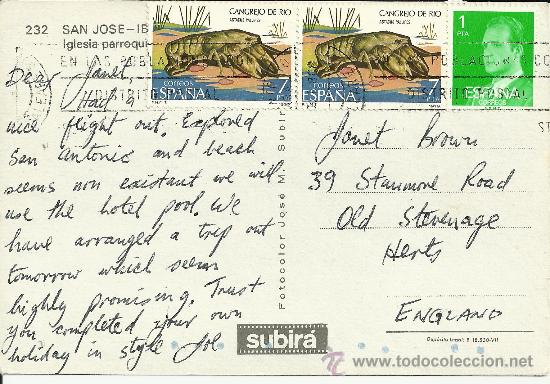 232 SAN JOSE-IB
Iglesia parroqui
CANGREJO DE RIO
ASTACUS PALLIPES
CORREOS
ESPAÑA
7
PTA
CANGREJO DE RIO
ASTACUS PALLIPES
CORREOS
ESPAÑA
7
PTA
1
PTA
ESPAÑA
CORREOS
EN LAS POBLA
DISTRITO POSTAL
Dear Janet,
Had a
nice flight out. Explored
San Antonio and beach
seems non existant we will
use the hotel pool. We
have arranged a trip out
tomorrow which seems
highly promising. Trust
you completed your own
holiday in style
Fotocolor José M. Subirá
subirá
Janet Brown
39 Stanmore Road
Old Stevenage
Herts
ENGLAND
Depósito Legal: B 18.530-VII
todocoleccion
www.todocoleccion.net